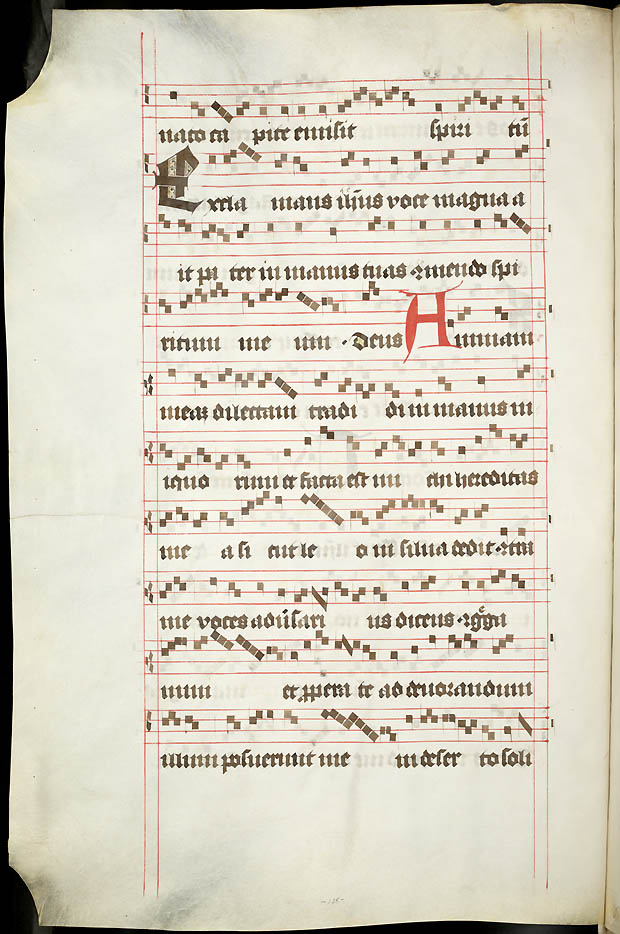 nato ca pite emisit spiri tū
Excla mans ih̄us voce magna a
it pa ter in manus tuas ꝯmendo spi
ritum me um · Deus Animam
meaꝫ dilectam tradi di in manus in
iquo rum et facta est mi chi hereditas
me a si cut le o in silua dedit ꝯtra
me voces aduʾsari us dicens · ꝯgͣga
mini et ꝓpera te ad deuorandum
illum posuerunt me in deser to soli